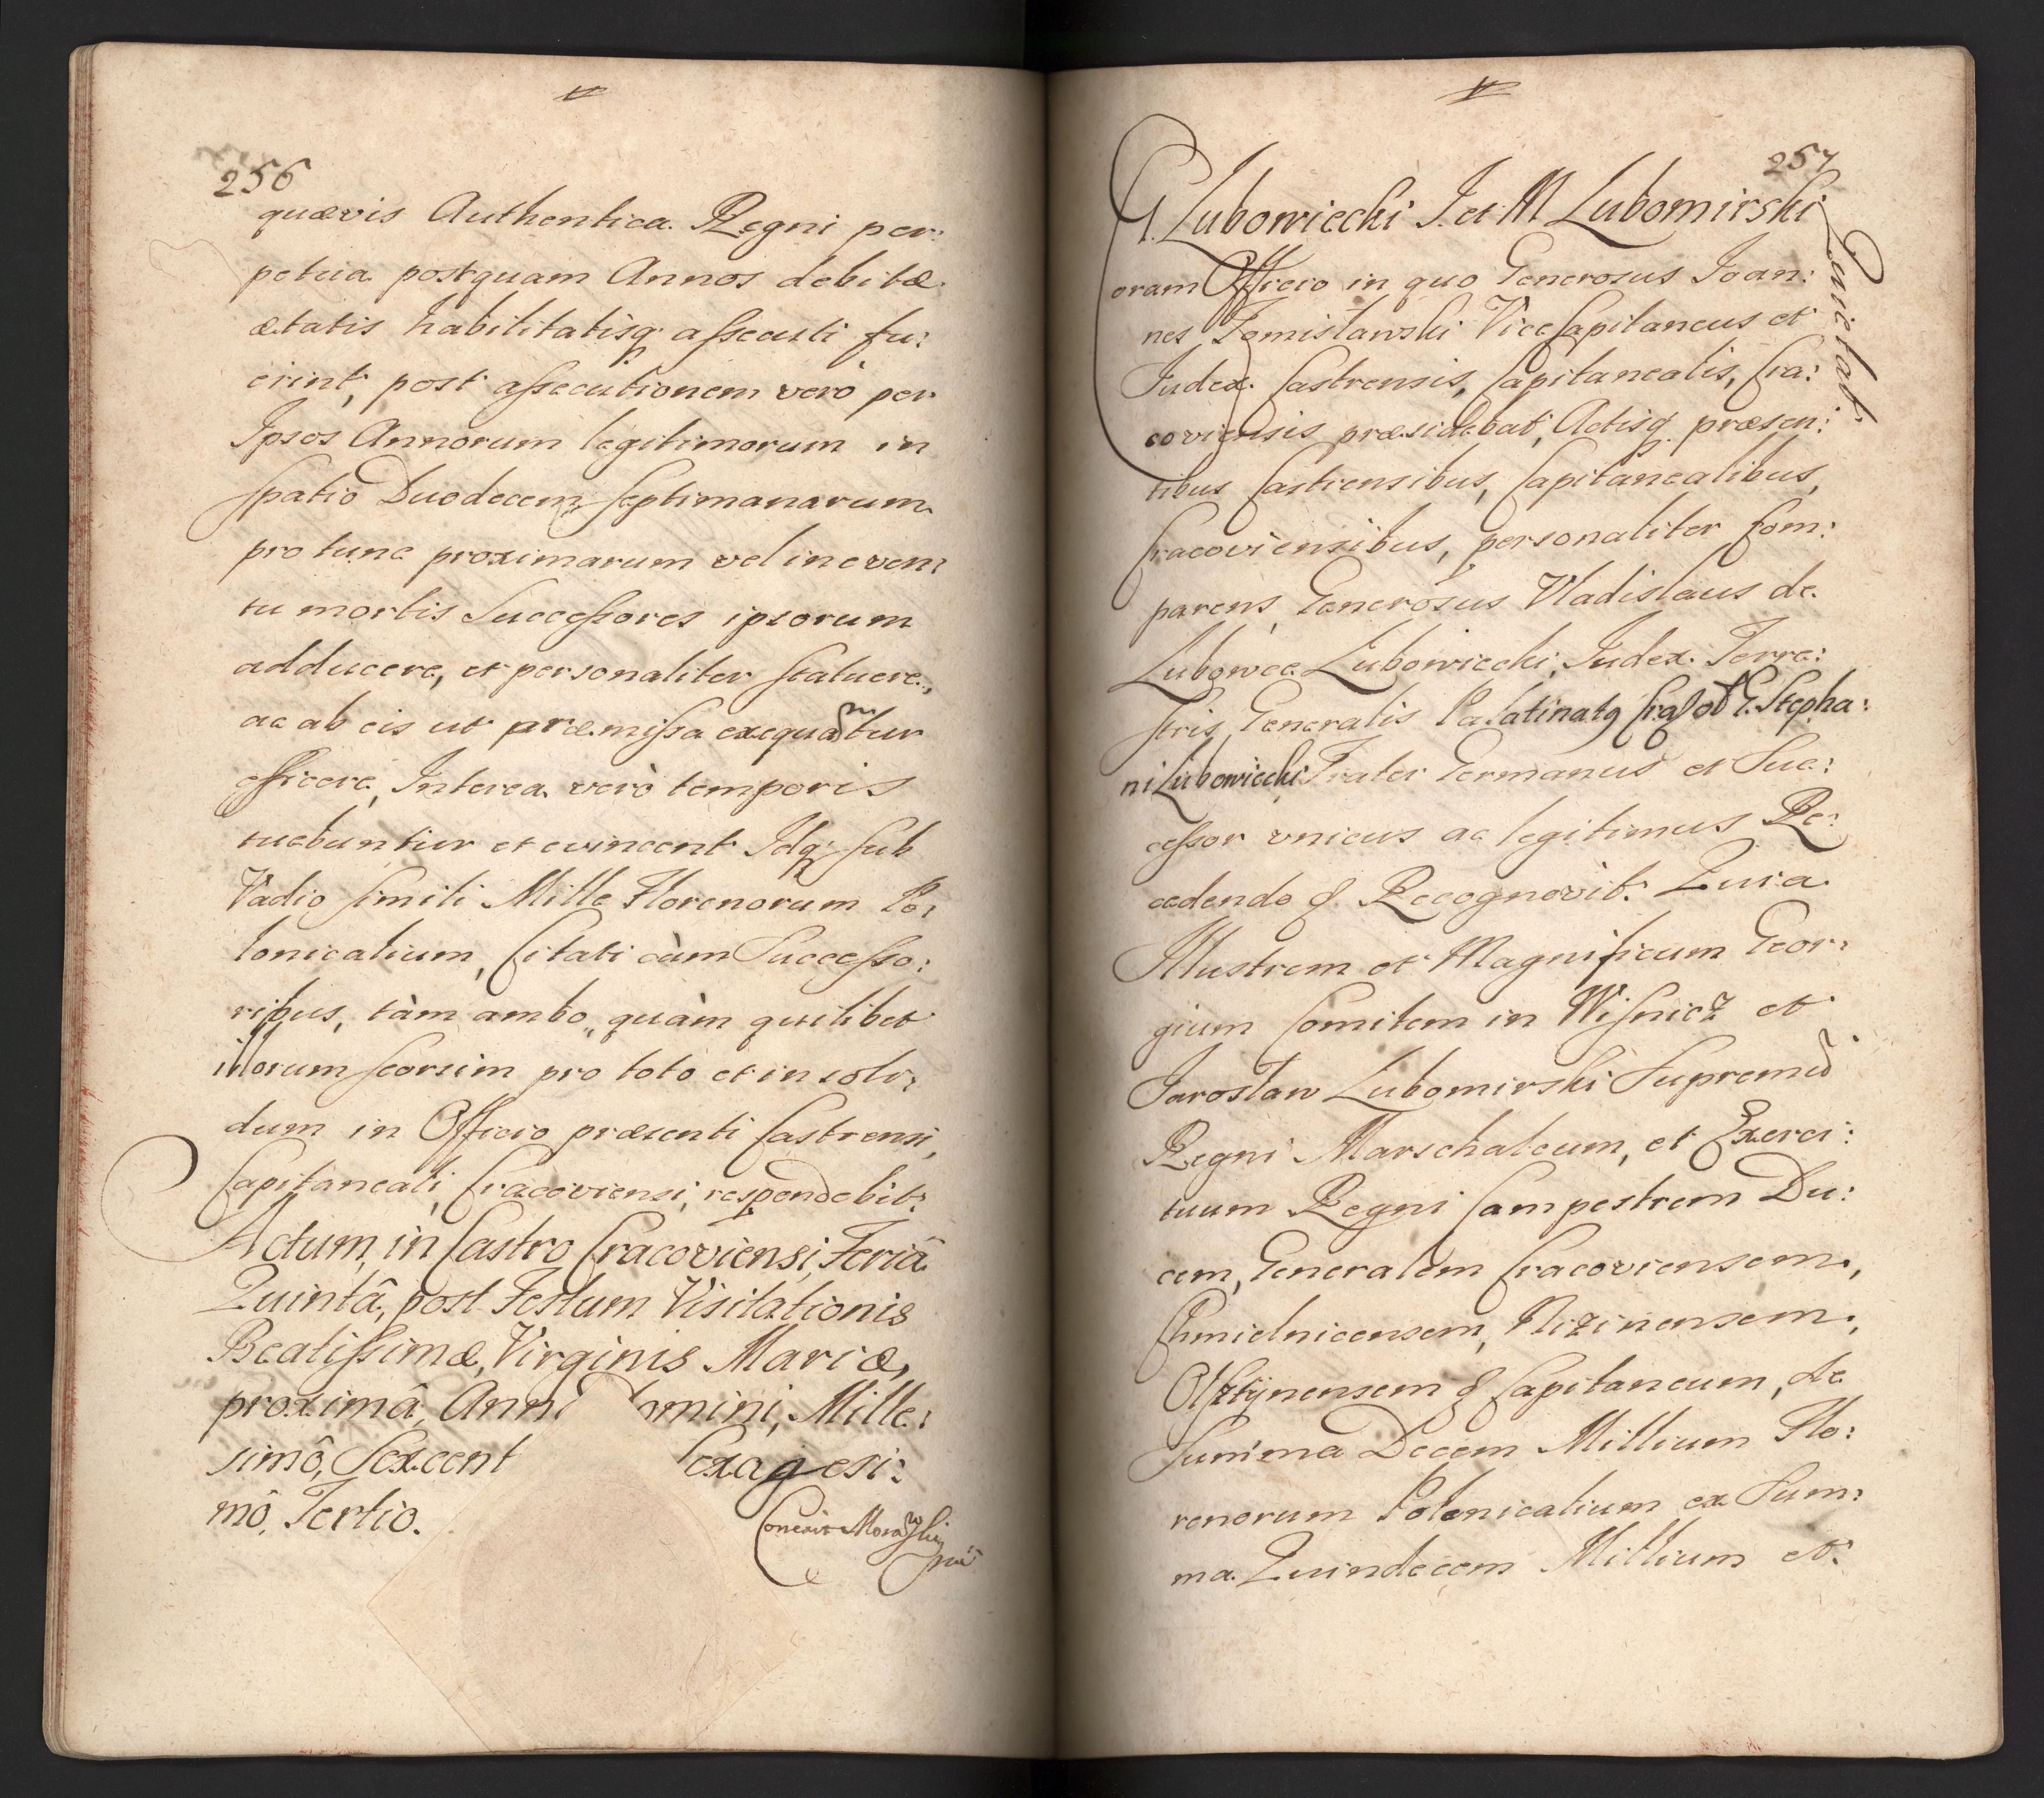 256
quævis Authentica Regni per:
petua postquam Annos debitæ
ætatis habilitatisq. assecuti fu:
erint, post assecutionem verò per
Ipsos Annorum legitimorum in
spatio Duodecem septimanarum
pro tunc proximarum vel in even:
tu mortis Successores ipsorum
adducere, et personaliter statuere,
ac ab eis ut præmissa exequantur
efficere, Interea verò temporis
tuebuntur et evincent Idq; sub
Vadio simili Mille Florenorum Po:
lonicalium, Citati cùm Successo:
ribus, tàm ambo, quàm quilibet
illorum seorsim pro toto et in soli:
dum in Officio præsenti Castrensi,
Capitaneali, Cracoviensi, respondebit.
Actum, in Castro Cracoviensi, Feriâ
Quintâ, post Festum Visitationis
Beatissimæ, Virginis Mariæ,
proximâ, Anno Domini, Mille:
simô, Sexcent exagesi:
mô, Tertio.
257
G. Lubowiecki I. et M Lubomirski
Quietat.
oram Officio in quo Generosus Joan:
nes Zemisławski Vice Capitaneus et
Judex Castrensis, Capitanealis, Cra:
coviensis præsidebat, Actisq. præsen:
tibus Castrensibus, Capitanealibus,
Cracoviensibus, personaliter Com:
parens, Generosus Vladislaus de
Lubowce Lubowiecki, Judex Terre:
stris Generalis Palatinatq Cra Stepha:
ni Lubowiecki Frater Germanus et Suc:
cessor vnicus ac legitimus Re:
cedendo &. Recognovit. Quia
Illustrem et Magnificum Geor:
gium Comitem in Wisnicz et
Jarosław Lubomirski Supremū
Regni Marschalcum, et Exerci:
tuum Regni Campestrem Du:
cem, Generalem Cracoviensem,
Chmielnicensem, Nizinensem,
Olsztÿnensem & Capitaneum, de
Summa Decem Millium Flo:
renorum Polonicalium ex Sum:
ma Quindecem Millium et